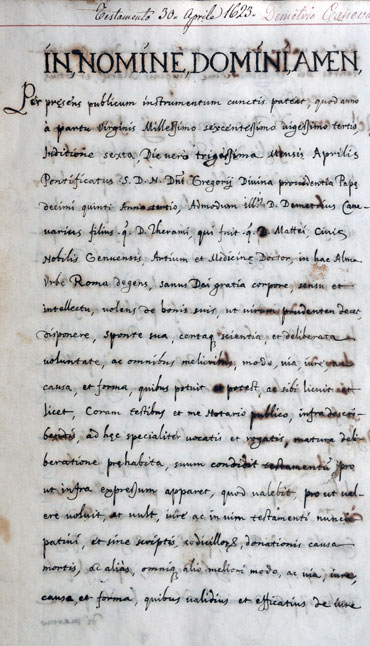 Testamento 30. Aprile 1623. Demetrio Canova
IN, NOMINE, DOMINI, AMEN,
Per presens publicum instrumentum cunctis pateat, quod anno
a partu Virginis Millessimo sexcentessimo vigessimo tertio
Inditione sexta, Die vero trigessima Mensis Aprilis
Pontificatus S. D. N. Dni Gregorij Divina providentia Pape
decimi quinti Anno tertio, Admodum ill. D. Demetrius Cane-
varius filius q. D. Therami, qui fuit q. D. Mattei, Civis
Nobilis Genuensis, Artium et Medicine Doctor, in hac Alma
Urbe Roma degens, sanus Dei gratia corpore, sensu et
intellectu, volens de bonis suis, ut virum prudentem decet
disponere, sponte sua, certaq scientia et deliberata
voluntate, ac omnibus melioribus, modo, via, iure
causa, et forma, quibus potuit et potest, ac sibi licuit et
licet, Coram testibus et me Notario publico, infradescri-
bendis, ad hec specialiter vocatis et rogatis, matura deli-
beratione prehabita, suum condidit testamentum, pro
ut infra expressum apparet, quod valebit, pro ut val-
ere voluit, ac vult, iure ac in vim testamenti nuncu-
pativi, et sine scriptis, codicillorum, donationis causa
mortis, ac alias, omniq alio meliori modo, ac via, iure,
causa, et forma, quibus validius et efficatius de iure